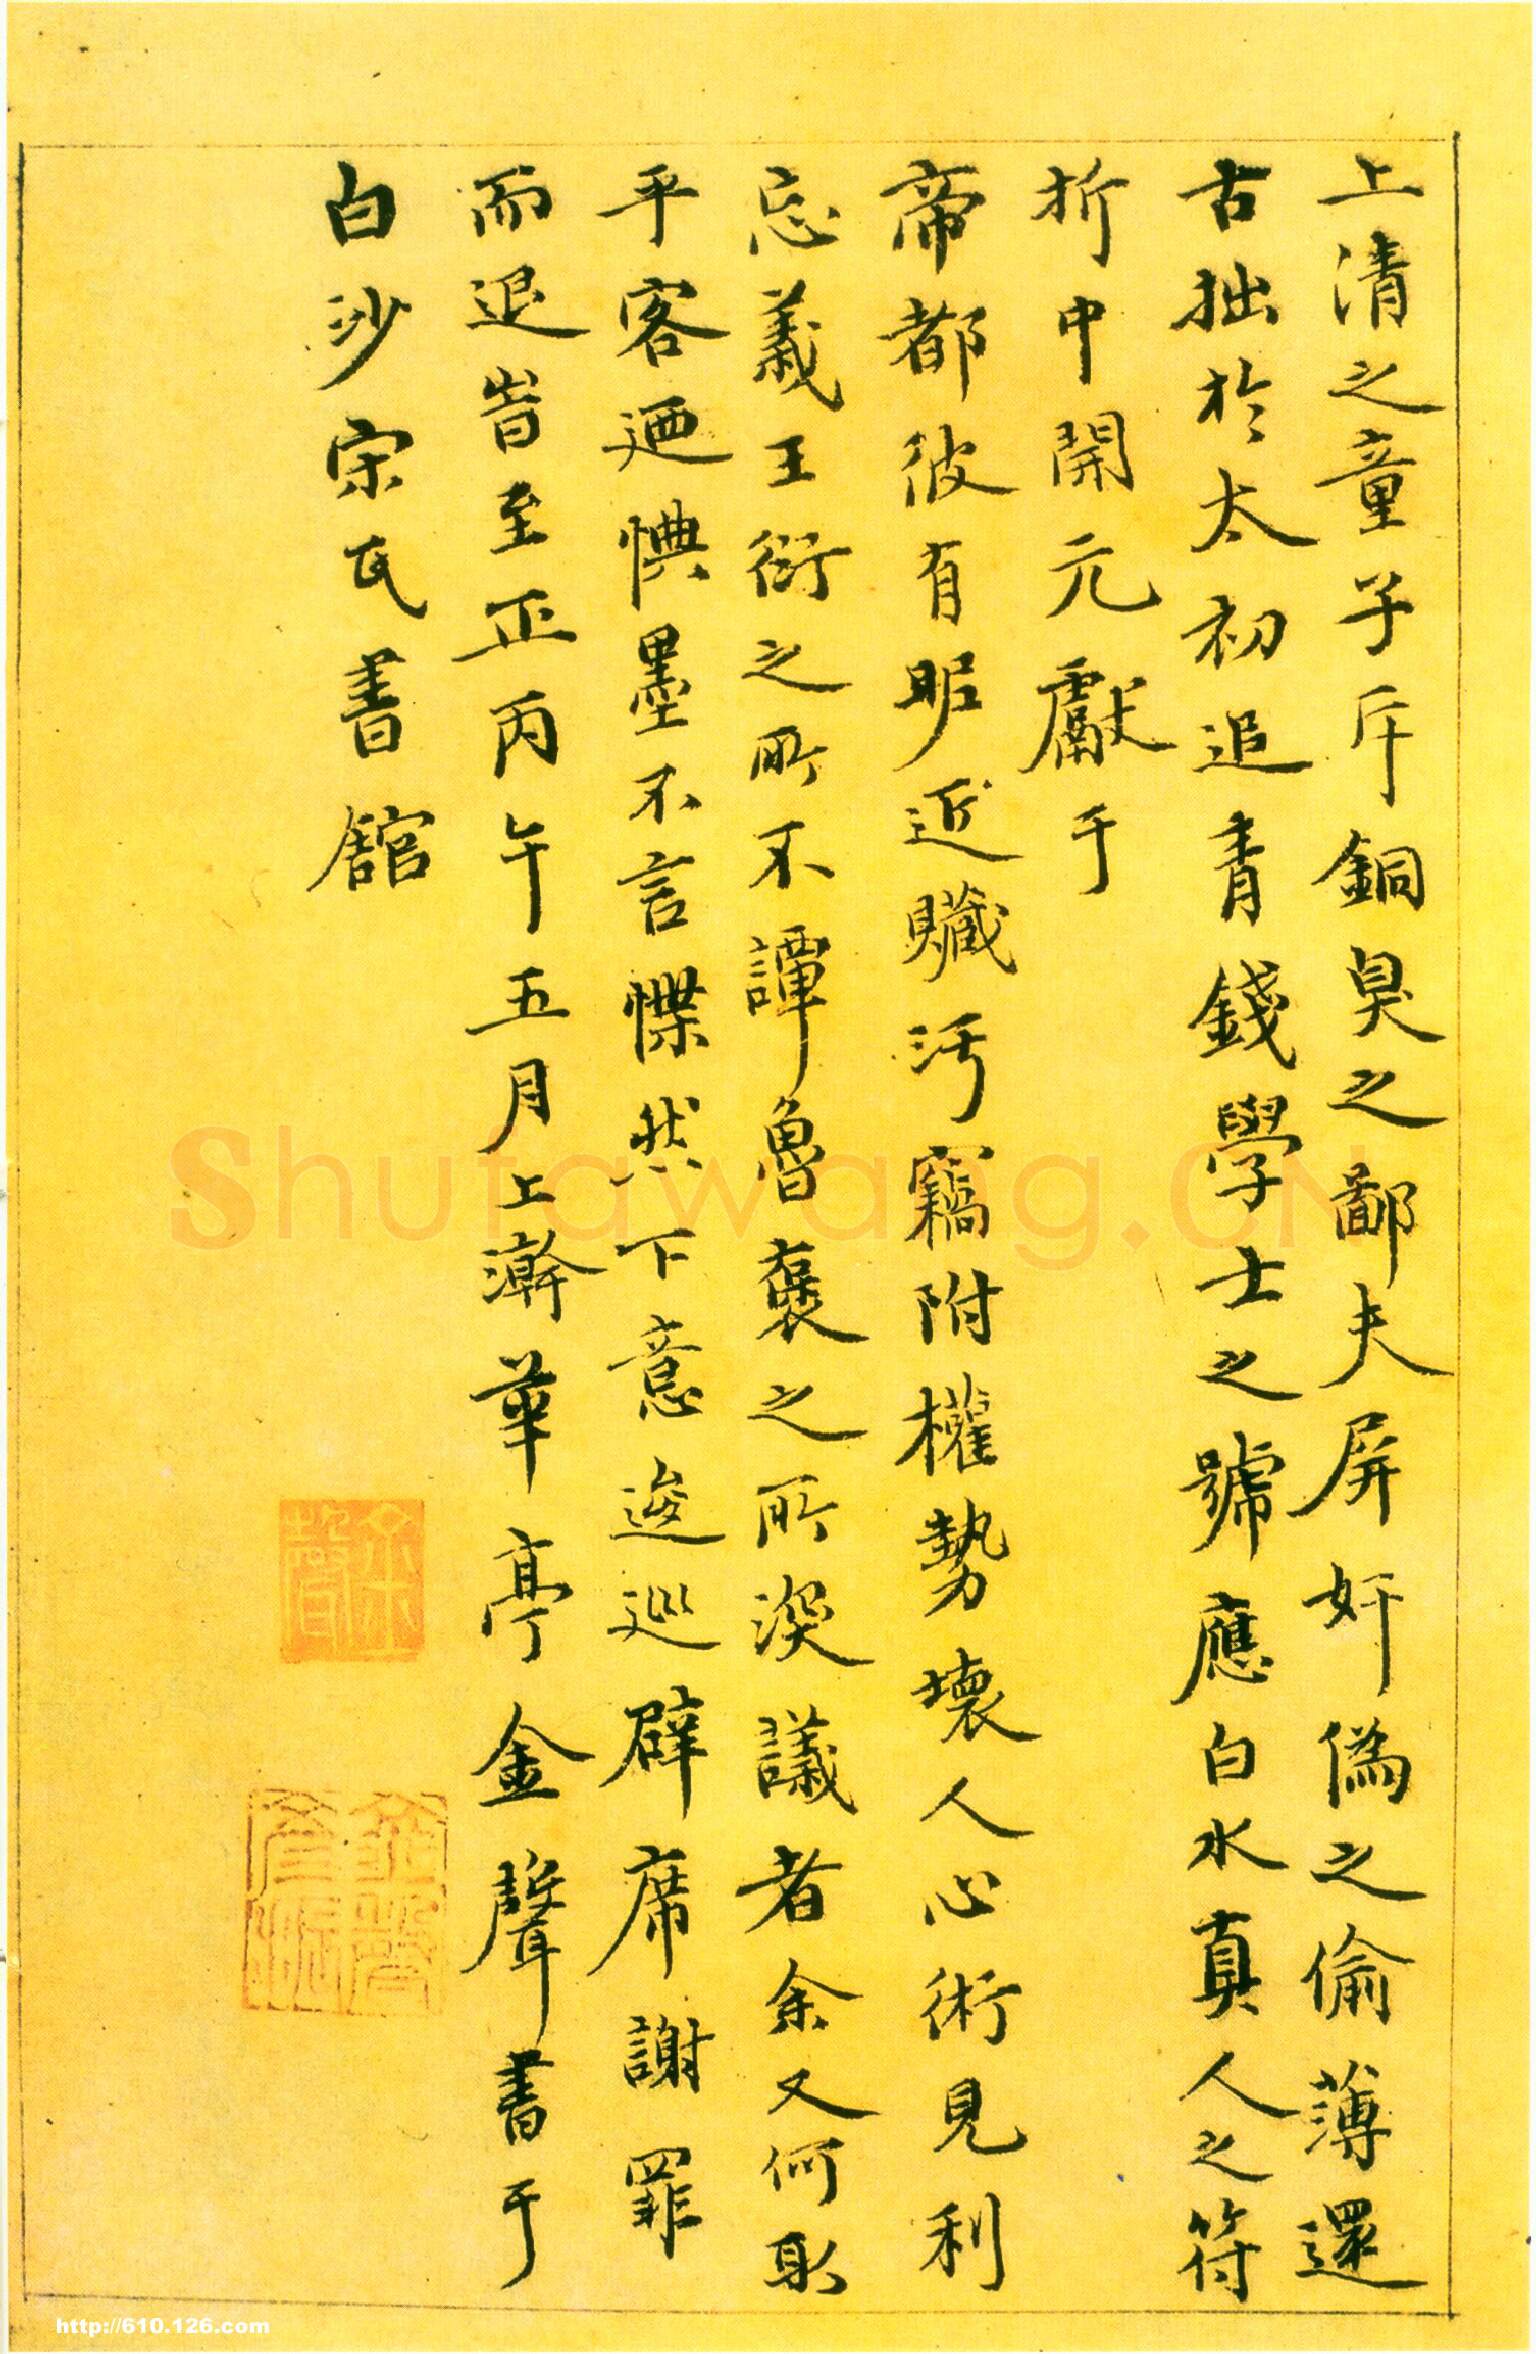 上清之童子斥銅臭之鄙夫屏奸偽之偷薄還
古拙於太初追青錢學士之號應白水真人之符
折中開元獻于
帝都彼有昵近贓污竊附權勢壞人心術見利
忘義王衍之所不譚魯褒之所深議者余又何取
平客迺懊墨不言惵然下意逡巡辟席謝罪
而退旹至正丙午五月上澣華亭金聲書于
白沙宋氏書館
Shufawang.CN
http://610.126.com